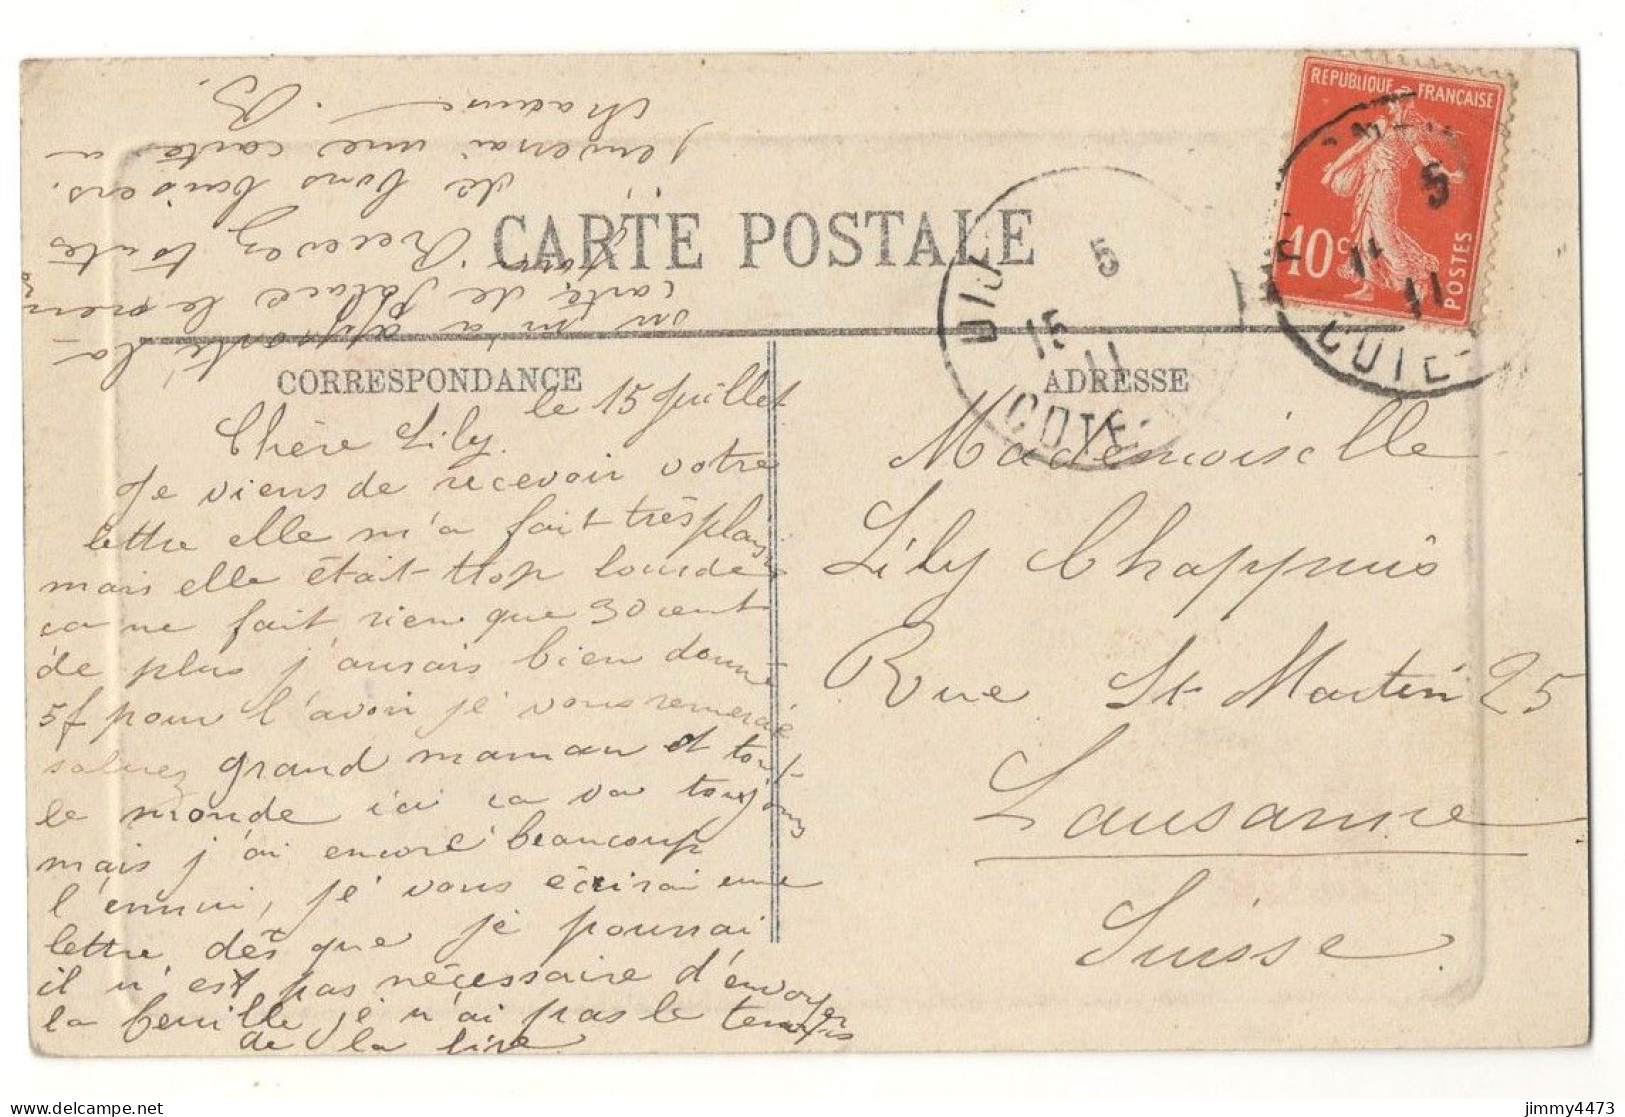 CARTE POSTALE
REPUBLIQUE FRANÇAISE
10c
POSTES
5
11
11
COTE-
5
15
11
COTE-
CORRESPONDANCE
ADRESSE
le 15 Juillet
Chère Lily.
Je viens de recevoir votre
lettre elle m'a fait très plaisir
mais elle était trop lourde
ça ne fait rien que 30 cent
de plus j'aurais bien donné
5f pour l'avoir je vous remercie
saluez grand maman et tout
le monde ici ça va toujours
mais j'ai encore beaucoup
l'ennui, je vous écrirai une
lettre dès que je pourrai
il n'est pas nécessaire d'envoyer
la feuille je n'ai pas le temps
de la lire
on m'a apporté la
carte de Palace le
Recevez toutes
de bons baisers.
J'enverrai une carte a
chacune. B.
Mademoiselle
Lily Chappuis
Rue St Martin 25
Lausanne
Suisse.
jimmy4473